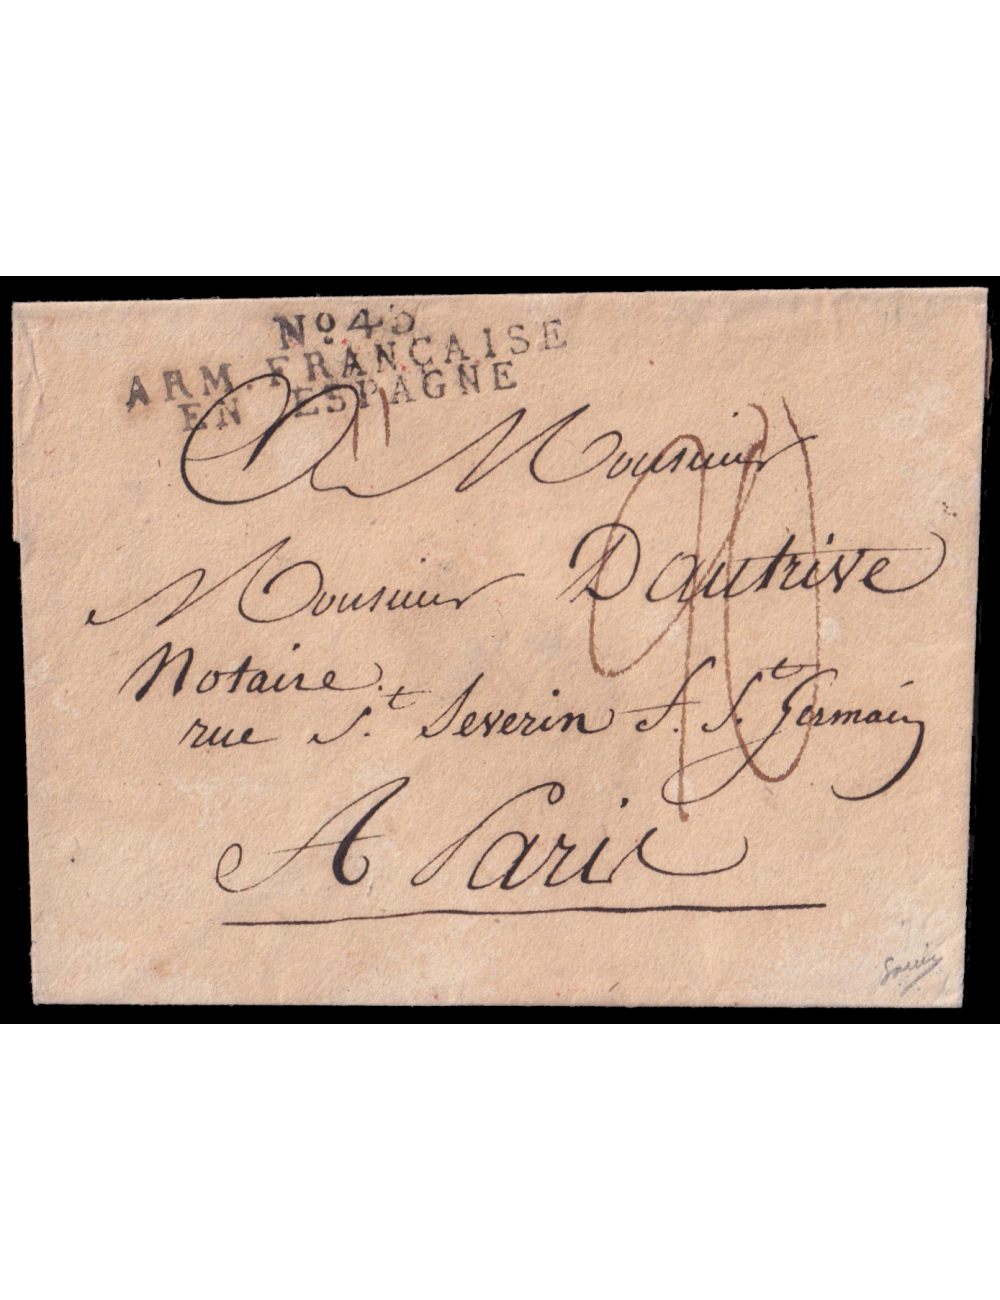 No. 45
ARM. FRANÇAISE
EN ESPAGNE
A Monsieur
Monsieur Dautrive
Notaire.
rue S.t Severin f. S.t Germain
A Paris